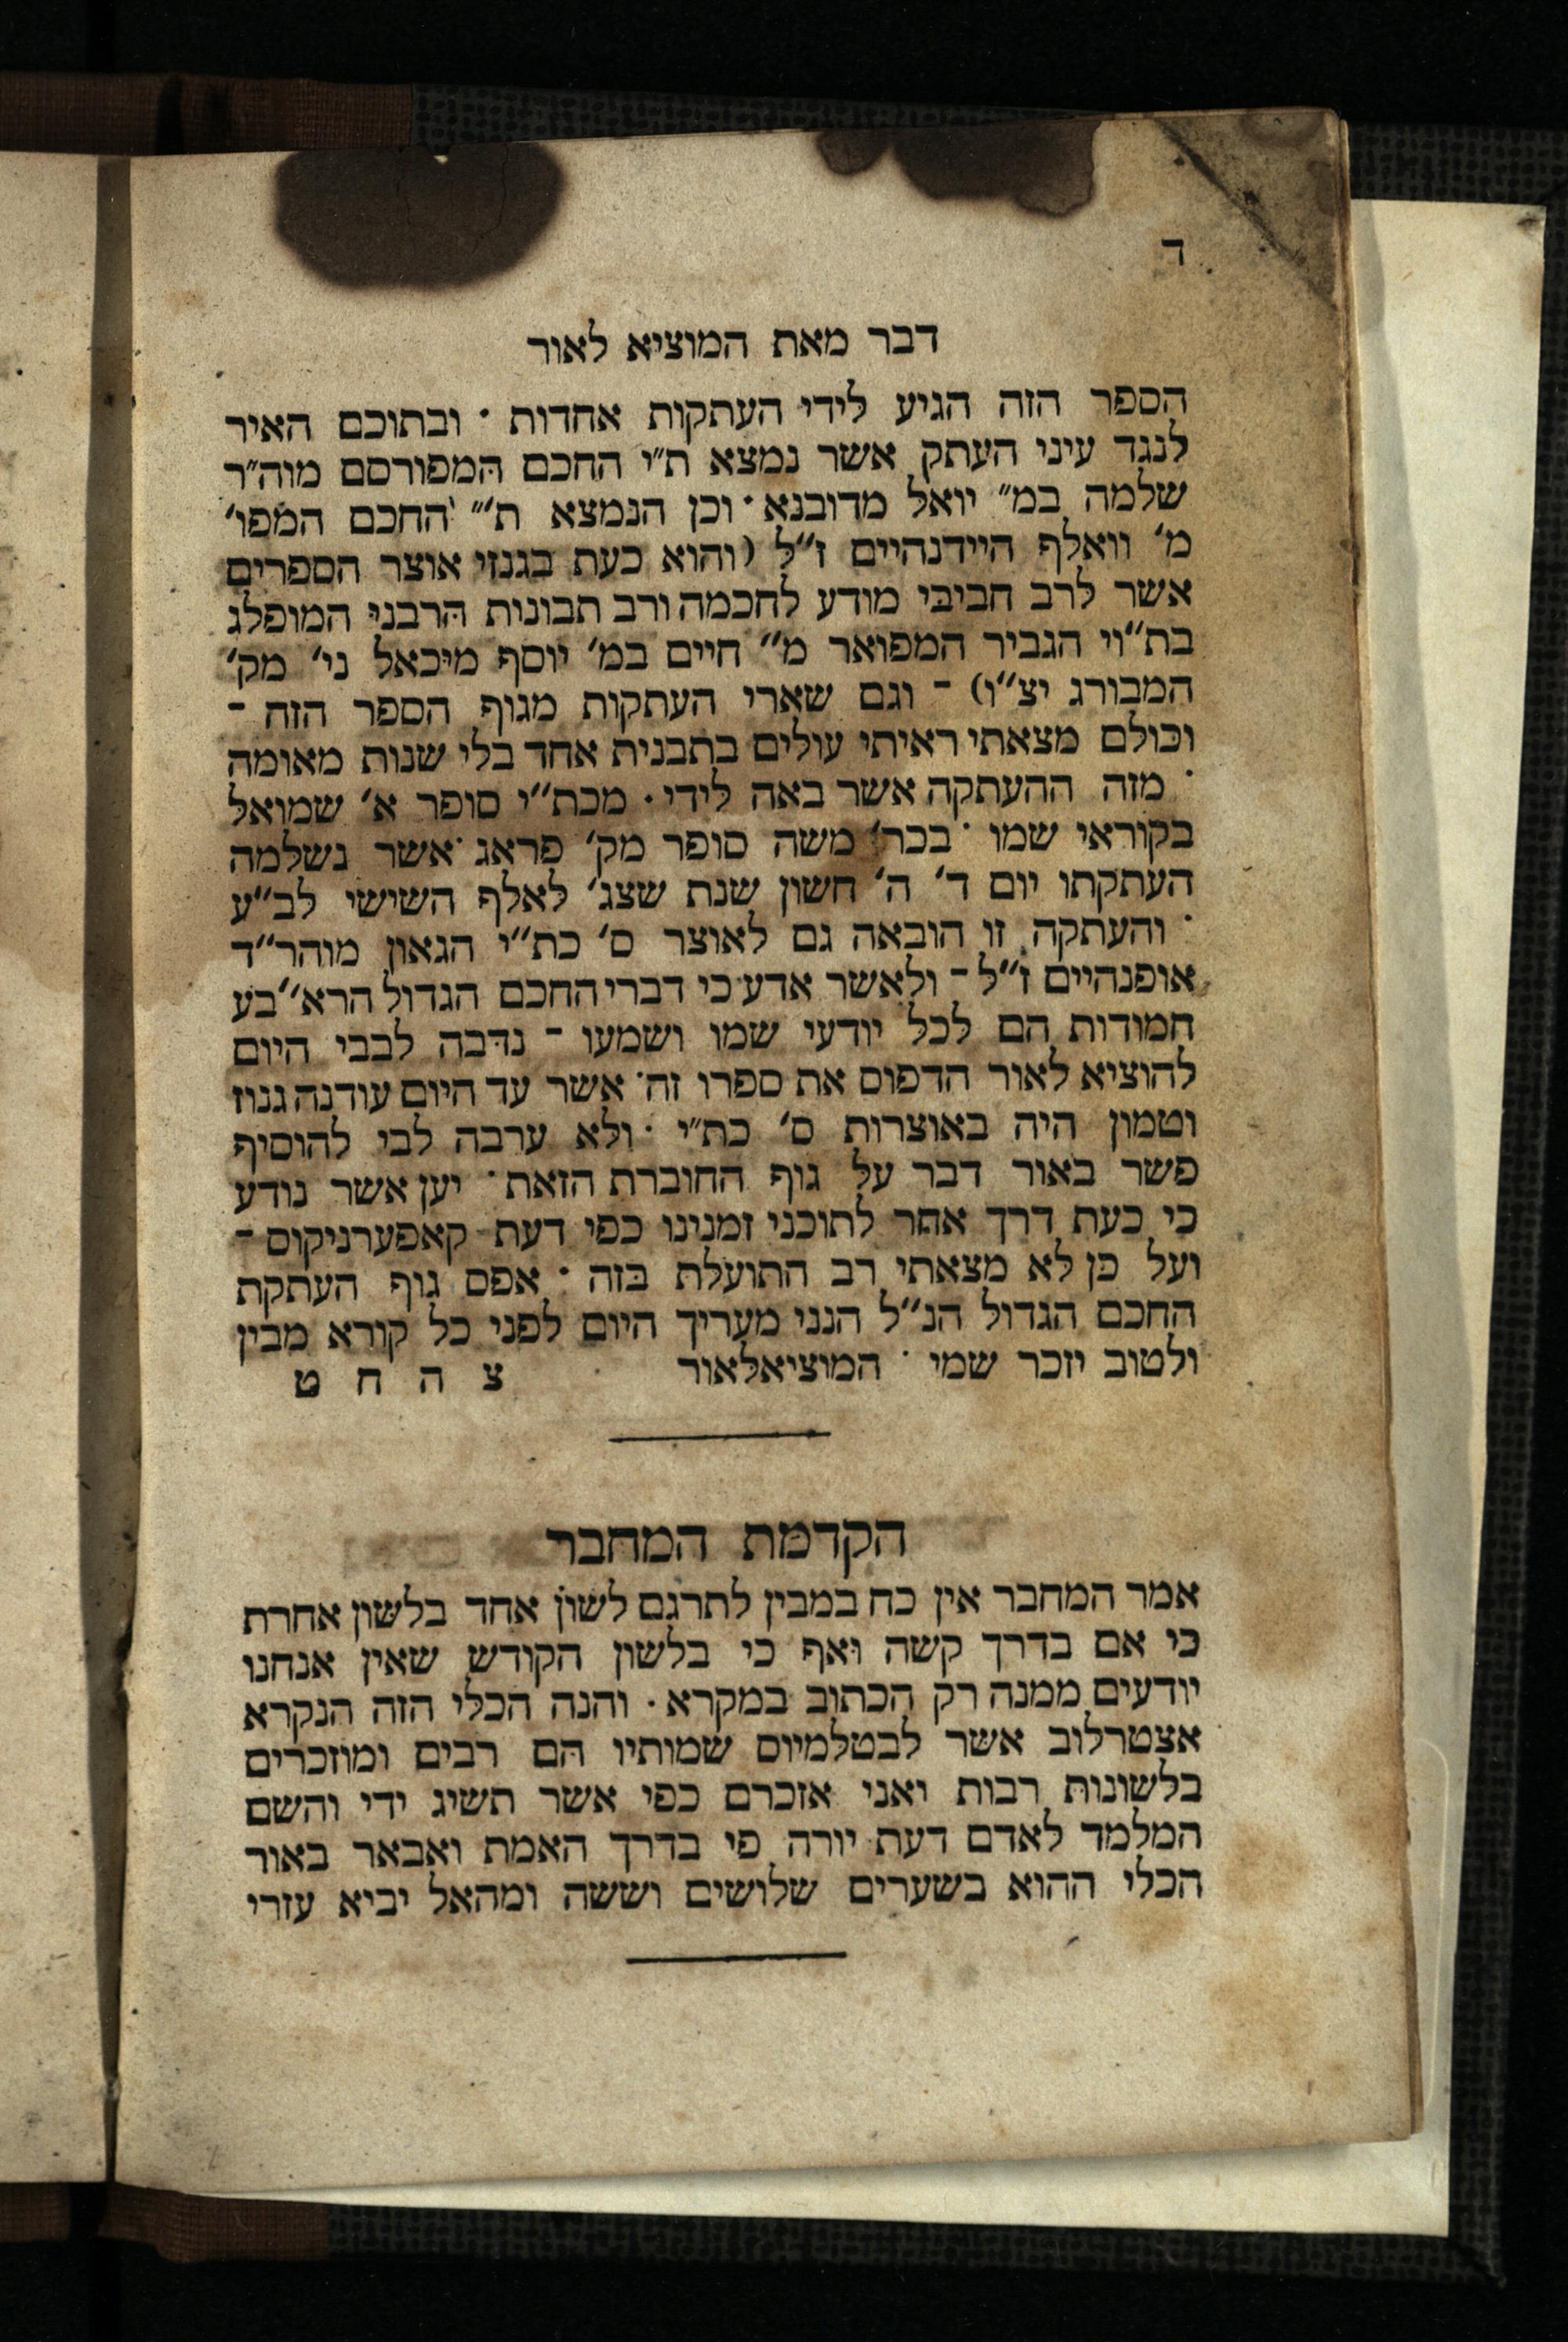 ד
דבר מאת המוציא לאור
הספר הזה הגיע לידי העתקות אחדות · ובתוכם האיר
לנגד עיני העתק אשר נמצא ת״י החכם המפורסם מוה״ר
שלמה במ״ יואל מדובנא · וכן הנמצא ת״׳ החכם המפו׳
מ׳ וואלף היידנהיים ז״ל (והוא כעת בגנזי אוצר הספרים
אשר לרב חביבי מודע לחכמה ורב תבונות הרבני המופלג
בת״וי הגביר המפואר מ״ חיים במ׳ יוסף מיכאל ני׳ מק׳
המבורג יצ״ו) - וגם שארי העתקות מגוף הספר הזה -
וכולם מצאתי ראיתי עולים בתבנית אחד בלי שנות מאומה
· מזה ההעתקה אשר באה לידי · מכת״י סופר א׳ שמואל
בקוראי שמו · בכר׳ משה סופר מק׳ פראג · אשר נשלמה
העתקתו יום ד׳ ה׳ חשון שנת שצג׳ לאלף השישי לב״ע
· והעתקה זו הובאה גם לאוצר ס׳ כת״י הגאון מוהר״ד
אופנהיים ז״ל - ולאשר אדע כי דברי החכם הגדול הרא״בע
חמודות הם לכל יודעי שמו ושמעו - נדבה לבבי היום
להוציא לאור הדפוס את ספרו זה · אשר עד היום עודנה גנוז
וטמון היה באוצרות ס׳ כת״י · ולא ערבה לבי להוסיף
פשר באור דבר על גוף החוברת הזאת · יען אשר נודע
כי כעת דרך אחר לתוכני זמנינו כפי דעת קאפערניקוס -
ועל כן לא מצאתי רב התועלת בזה · אפס גוף העתקת
החכם הגדול הנ״ל הנני מעריך היום לפני כל קורא מבין
ולטוב יזכר שמי · המוציאלאור צ ה ח ט
הקדמת המחבר
אמר המחבר אין כח במבין לתרגם לשון אחד בלשון אחרת
כי אם בדרך קשה ואף כי בלשון הקודש שאין אנחנו
יודעים ממנה רק הכתוב במקרא · והנה הכלי הזה הנקרא
אצטרלוב אשר לבטלמיוס שמותיו הם רבים ומוזכרים
בלשונות רבות ואני אזכרם כפי אשר תשיג ידי והשם
המלמד לאדם דעת יורה פי בדרך האמת ואבאר באור
הכלי ההוא בשערים שלושים וששה ומהאל יביא עזרי